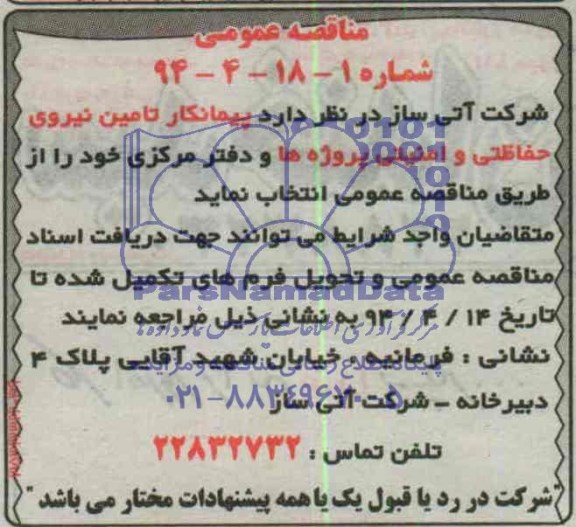 مناقصه عمومی
شماره ۱ – ۱۸ – ۴ – ۹۴
شرکت آتی ساز در نظر دارد پیمانکار تامین نیروی
حفاظتی و امنیتی پروژه ها و دفتر مرکزی خود را از
طریق مناقصه عمومی انتخاب نماید
متقاضیان واجد شرایط می توانند جهت دریافت اسناد
مناقصه عمومی و تحویل فرم های تکمیل شده تا
ParsNamadData
تاریخ ۱۴ / ۴ / ۹۴ به نشانی ذیل مراجعه نمایند
نشانی : فرمانیه - خیابان شهید آقایی پلاک ۴
دبیرخانه – شرکت آتی ساز
۰۲۱-۸۸۳۴۹۶۷۰-۵
تلفن تماس : ۲۲۸۳۲۷۳۲
"شرکت در رد یا قبول یک یا همه پیشنهادات مختار می باشد"